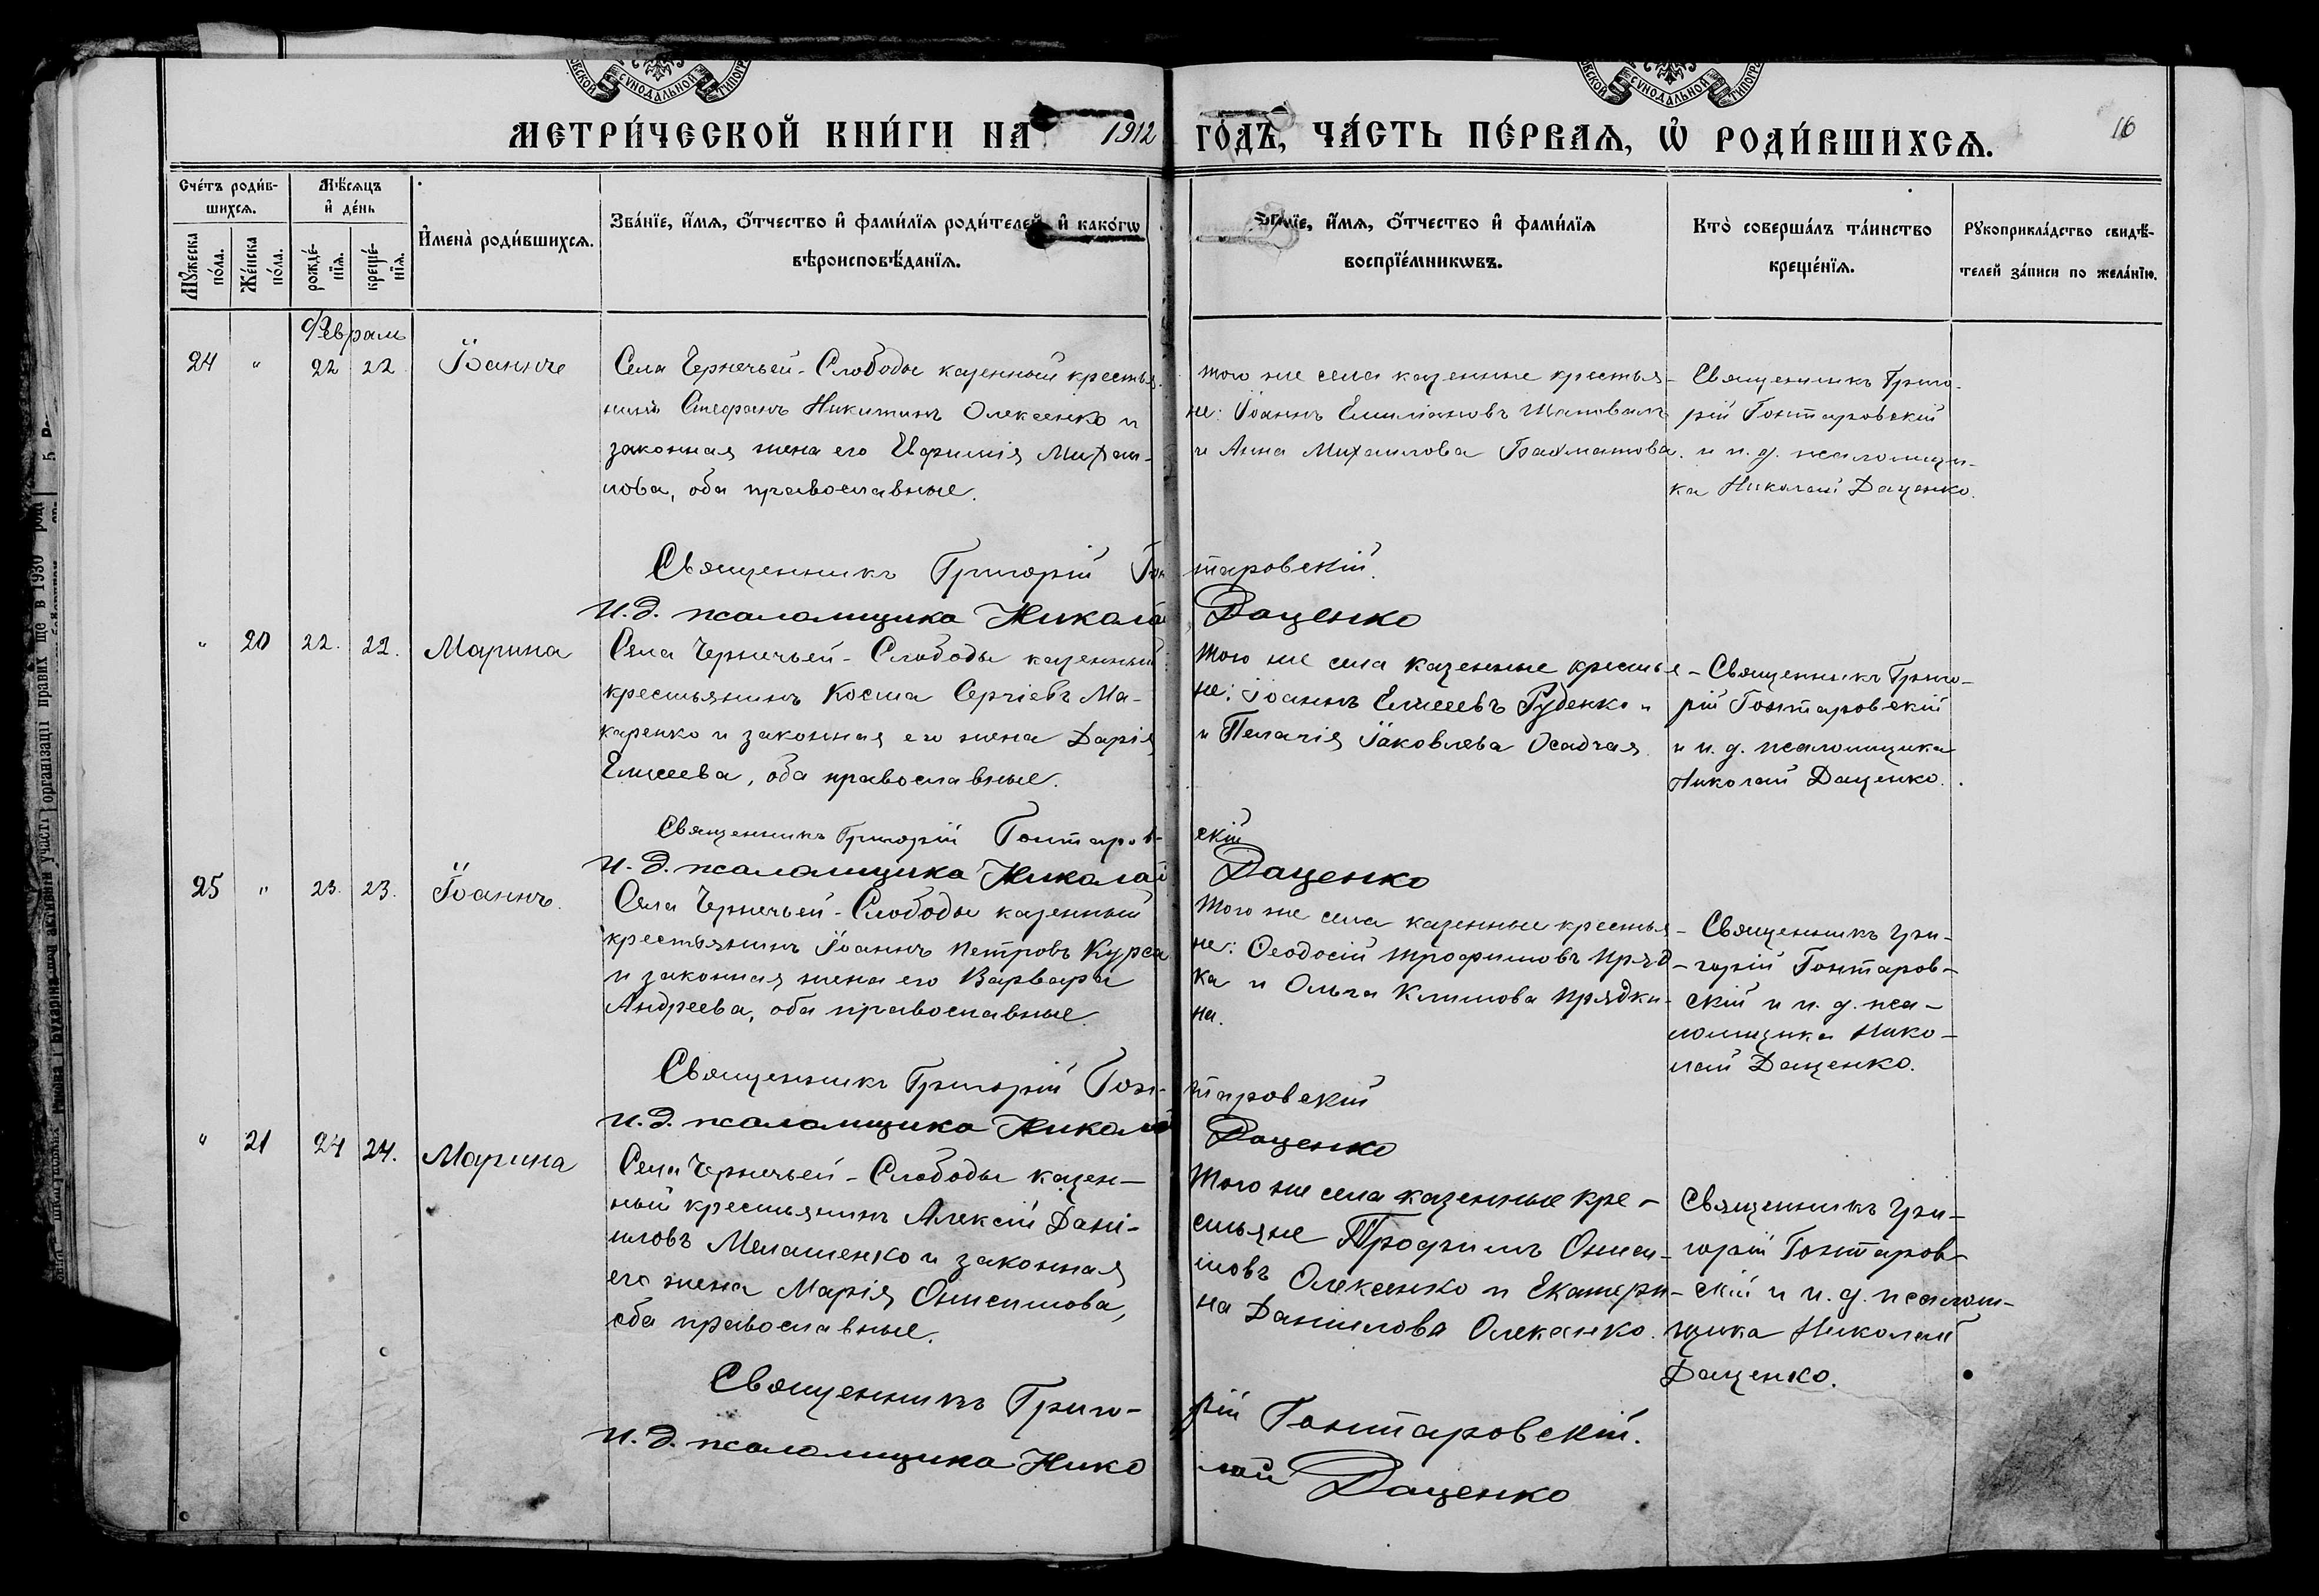 СУНОДАЛЬНОЙ
СУНОДАЛЬНОЙ
МЕТРИ́ЧЕСКОЙ КНИ́ГИ НА 1912 ГО́ДЪ, ЧА́СТЬ ПЕ́РВАѦ, Ѽ РОДИ́ВШИХСѦ.
16
Сче́тъ роди́в-
шихсѧ.
Мѣ́сѧцъ
и҆ де́нь
Мꙋ́жеска
по́ла.
Же́нска
по́ла.
рожде́-
нїѧ.
креще́-
нїѧ.
И҆мена̀ роди́вшихсѧ.
Зва́нїе, и҆́мѧ, ѻ҆́тчество и҆ фами́лїѧ роди́телей, и҆ како́гѡ
вѣроисповѣ́данїѧ.
Зва́нїе, и҆́мѧ, ѻ҆́тчество и҆ фами́лїѧ
воспрїе́мникѡвъ.
Кто̀ соверша́лъ та́инство
креще́нїѧ.
Рꙋкоприкла́дство свидѣ́-
телей за́писи по жела́нїю.
Февраль
24 " 22 22 Іоаннъ
Села Чернечьей-Слободы казенный крестья-
нинъ Стефанъ Никитинъ Олексенко и
законная жена его Евфимія Михаи-
лова, оба православные.
того же села казенные крестья-
не: Іоаннъ Емиліановъ Шаповалъ
и Анна Михаилова Бахматова.
Священникъ Григо-
рій Гонтаровскій
и и. д. псаломщи-
ка Николай Даценко.
Священникъ Григорій Гонтаровскій.
И. д. псаломщика Николай Даценко
" 20 22. 22. Марина
Села Чернечьей-Слободы казенный
крестьянинъ Косма Сергіевъ Ма-
каренко и законная его жена Дарія
Елисеева, оба православные.
Того же села казенные крестья-
не: Іоаннъ Елисеевъ Руденко и
и Пелагія Іаковлева Осадчая
Священникъ Григо-
рій Гонтаровскій
и и. д. псаломщика
Николай Даценко.
Священникъ Григорій Гонтаровскій
И. д. псаломщика Николай Даценко
25 " 23. 23. Іоаннъ.
Села Чернечьей-Слободы казенный
крестьянинъ Іоаннъ Петровъ Курса
и законная жена его Варвара
Андреева, оба православные.
Того же села казенные крестья-
не: Ѳеодосій Трофимовъ Пряд-
ка и Ольга Климова Прядки-
на.
Священникъ Гри-
горій Гонтаров-
скій и и. д. пса-
ломщика Нико-
лай Даценко.
Священникъ Григорій Гонтаровскій
И. д. псаломщика Николай Даценко
" 21 24 24. Марина
Села Чернечьей-Слободы казен-
ный крестьянинъ Алексій Дані-
иловъ Мелашенко и законная
его жена Марія Онисимова,
оба православные.
Того же села казенные кре-
стьяне Трофимъ Ониси-
мовъ Олексенко и Екатери-
на Даниилова Олексенко.
Священникъ Гри-
горій Гонтаров-
скій и и. д. псалом-
щика Николай
Даценко.
Священникъ Григо-рій Гонтаровскій.
И. д. псаломщика Николай Даценко